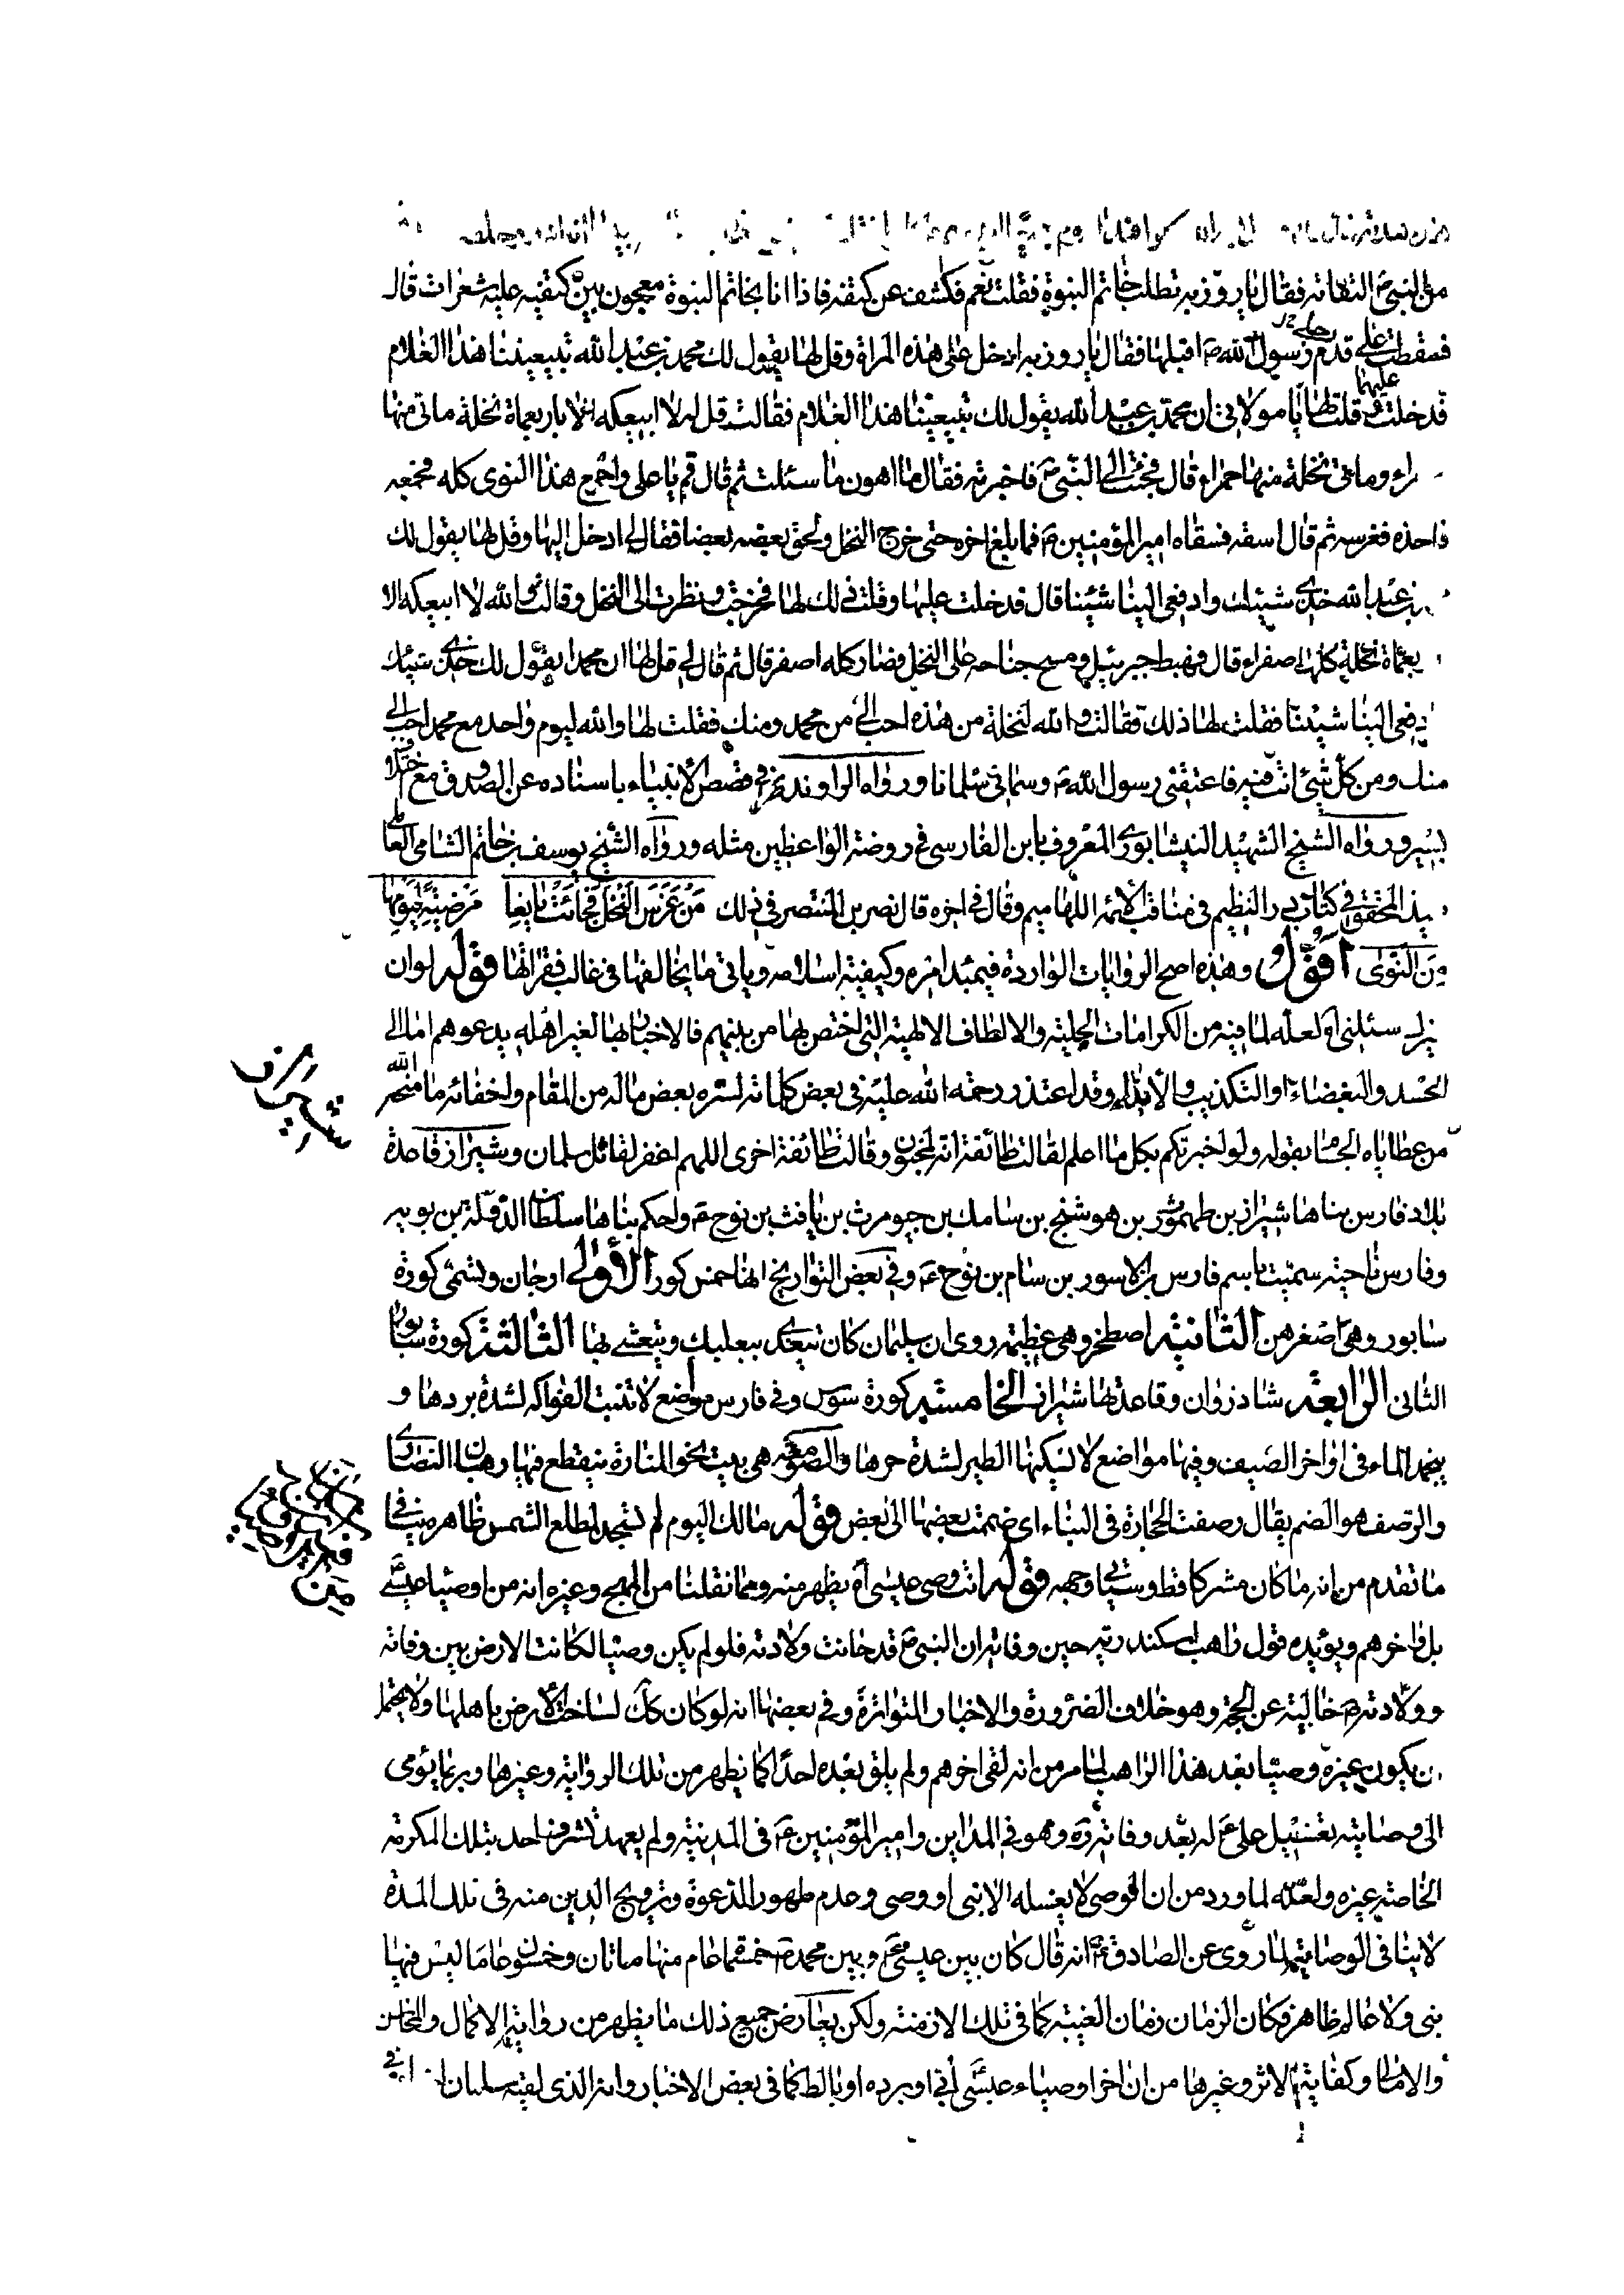 من النبي ص التفاتة فقال يا روزبه تطلب خاتم النبوة فقلت نعم فكشف عن كتفه فاذا انا بخاتم النبوة معجون بين كتفيه عليه شعرات قال
فسقطت على قدم رسول الله ص اقبلها فقال يا روزبه ادخل على هذه المراة وقل لها يقول لك محمد بن عبد الله تبيعيننا هذا الغلام
فدخلت عليها قلت لها يا مولاتي ان محمد بن عبد الله يقول لك تبيعيننا هذا الغلام فقالت قل له لا ابيعكه الا باربعماة نخلة ماتي منها
راء وماتي نخلة منها حمراء قال فجئت الى النبي ص فاخبرته فقال ما اهون ما سئلت ثم قال قم يا على واجمع هذا النوى كله فجمعه
واخذه فغرسه ثم قال اسقه فسقاه امير المؤمنين ع فما بلغ اخره حتى خرج النخل ولحق بعضه بعضا فقال لي ادخل اليها وقل لها يقول لك
بن عبد الله خذي شيئك وادفعي الينا شيئنا قال فدخلت عليها وقلت ذلك لها فخرجت ونظرت الى النخل وقالت والله لا ابيعكه الا
بعماة نخلة كلها صفراء قال فهبط جبرئيل ومسح جناحه على النخل فصار كله اصفر قال ثم قال لي قل لها ان محمدا يقول لك خذي شيئك
دفعي الينا شيئنا فقلت لها ذلك فقالت والله لنخلة من هذه احب الي من محمد ومنك فقلت لها والله ليوم واحد مع محمد احب الي
منك ومن كل شئ انت فيه فاعتقني رسول الله ص وسماني سلمانا ورواه الراوندي في قصص الانبياء باسناده عن الصدوق مع اختلاف
يسير ورواه الشيخ الشهيد النيشابوري المعروف بابن الفارسي في روضة الواعظين مثله ورواه الشيخ يوسف بن حاتم الشامي العاملي
يذ المحقق في كتاب در النظيم في مناقب الائمة اللهاميم وقال في اخره قال نصر بن المنتصر في ذلك من غرس النخل فجائت يانعا مرضية ليومها
من النوى اقول وهذه اصح الروايات الواردة في مبدا امره وكيفية اسلامه وياتي ما يخالفها في غالب فقراتها قوله لو ان
سئلني اه لعله لما فيه من الكرامات الجلية والالطاف الالهية التي اختص بها من بينهم فالاخبار بها لغير اهله يدعوهم اما الى
الحسد والبغضاء او التكذيب والايذاء وقد اعتذر رحمه الله عليه في بعض كلماته لستره بعض ماله من المقام ولخفائه ما منحه الله
من عطاياه الجسام بقوله ولو اخبرتكم بكل ما اعلم لقالت طائفة انه لمجنون وقالت طائفة اخرى اللهم اغفر لقاتل سلمان وشيراز قاعدة
بلاد فارس بناها شيراز بن طهمورث بن هوشنج بن سامك بن جيومرث بن يافث بن نوح ع واحكم بناها سلطان الدولة بن بويه
وفارس ناحية سميت باسم فارس بن الاسور بن سام بن نوح ع وفي بعض التواريخ انها خمس كور الاولى ارجان وتسمى كورة
سابور وهي اصغرهن الثانية اصطخر وهي عظيمة روى ان سليمان كان يتغدى ببعلبك ويتعشى بها الثالثة كورة سابور
الثاني الرابعة شاذروان وقاعدتها شيراز الخامسة كورة سوس وفي فارس مواضع لا تنبت الفواكه لشدة بردها و
ينجمد الماء في اواخر الصيف وفيها مواضع لا يسكنها الطير لشدة حرها والصومعة هي بيت نحو المنارة ينقطع فيها رهبان النصارى
والرصف هو الضم يقال رصفت الحجارة في البناء اى ضممت بعضها الى بعض قوله مالك اليوم لم تسجد لمطلع الشمس ظاهره ينافي
ما تقدم من انه ما كان مشركا قط وسياتي وجهه قوله انت وصى عيسى اه يظهر منه ومما نقلنا من المهج وغيره انه من اوصياء عيسى
بل اخرهم ويؤيده قول راهب اسكندرية حين وفاته ان النبي ص قد حانت ولادته فلو لم يكن وصيا لكانت الارض بين وفاته
وولادته ص خالية عن الحجة وهو خلاف الضرورة والاخبار المتواترة وفي بعضها انه لو كان كك لساخت الارض باهلها ولا يحتمل
ن يكون غيره وصيا بعد هذا الراهب لما مر من انه لقى اخرهم ولم يلق بعده احدا كما يظهر من تلك الرواية وغيرها وربما يؤمى
الى وصايته تغسيل على ع له بعد وفاته ره وهو في المداين وامير المؤمنين ع في المدينة ولم يعهد تشرف احد بتلك المكرمة
الخاصة غيره ولعله لما ورد من ان الوصي لا يغسله الا نبي او وصى وعدم ظهور الدعوة وترويج الدين منه في تلك المدة
لا ينافي الوصاية لما روى عن الصادق ع انه قال كان بين عيسى ع وبين محمد ص خمسمائة عام منها ماتان وخمسون عاما ليس فيها
نبي ولا عالم ظاهر فكان الزمان زمان الغيبة كما في تلك الازمنة ولكن يعارض جميع ذلك ما يظهر من رواية الاكمال والمحاسن
والامالي وكفاية الاثر وغيرها من ان اخر اوصياء عيسى أبي او برده او بالط كما في بعض الاخبار وانه الذي لقيه سلمان
شيراز